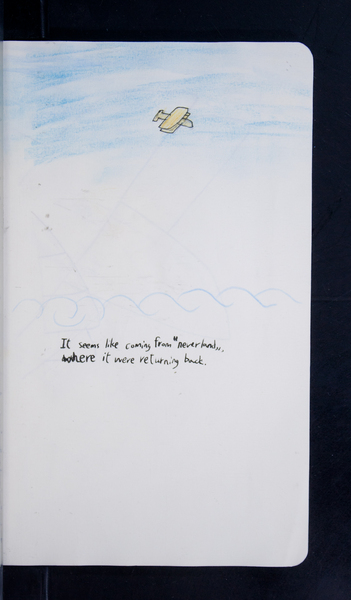 It seems like coming from "neverland„.
where it were returning back.